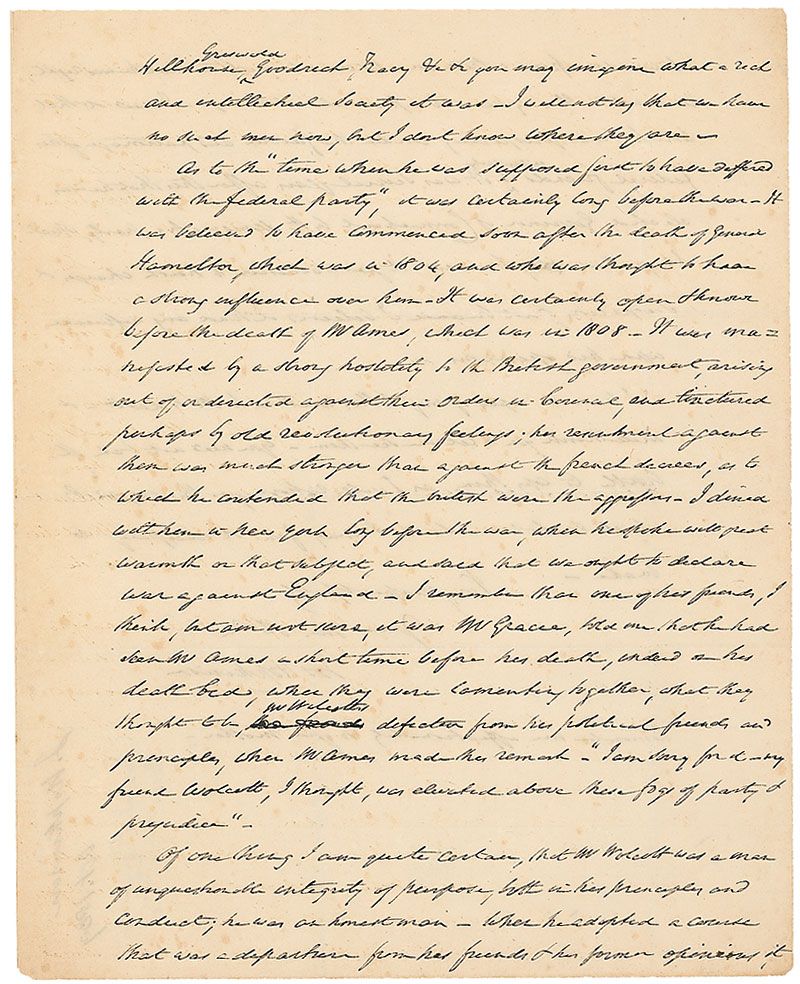 Griswold
Hillhouse, Goodrich, Tracy &c &c you may imagine what a rich
and intellectual society it was – I will not say that we have
no such men now, but I dont know where they are –
As to the "time when he was supposed first to have differed
with the federal party", it was certainly long before the war – It
was believed to have commenced soon after the death of General
Hamilton, which was in 1804, and who was thought to have
a strong influence over him – It was certainly open & known
before the death of Mr Ames, which was in 1808 – It was ma=
nifested by a strong hostility to the British government, arising
out of or directed against their Orders in Council, and tinctured
perhaps by old revolutionary feelings; his resentment against
them was much stronger than against the french decrees, as to
which he contended that the british were the aggressors – I dined
with him in New York long before the war, when he spoke with great
warmth on that subject, and said that we ought to declare
war against England – I remember that one of his friends, I
think, but am not sure, it was Mr Gracie, told me that he had
seen Mr Ames a short time before his death, indeed on his
death bed, when they were lamenting together, what they
Mr Wolcotts
thought to be, defection from his political friends and
principles, when Mr Ames made this remark – "I am sorry for it – my
friend Wolcott, I thought, was elevated above these fogs of party &
prejudice" –
Of one thing I am quite certain, that Mr Wolcott was a man
of unquestionable integrity of purpose, both in his principles and
conduct; he was an honest man – When he adopted a course
that was a departure from his friends & his former opinions it,